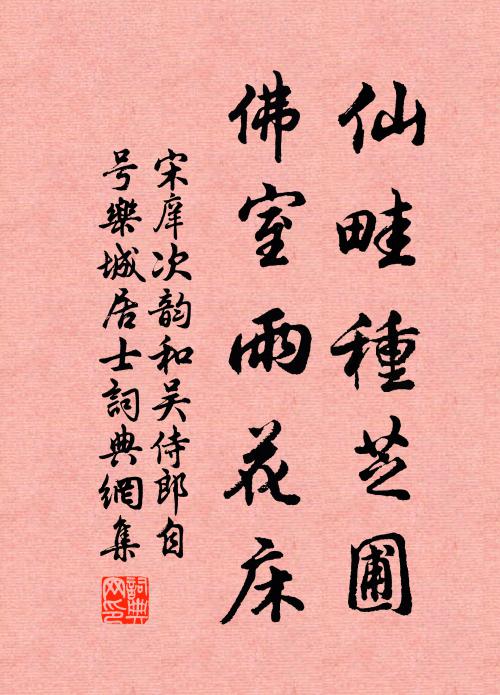 仙畦種芝圃
佛室雨花床
宋庠次韵和吴侍郎自
号樂城居士詞典網集
詞典網印